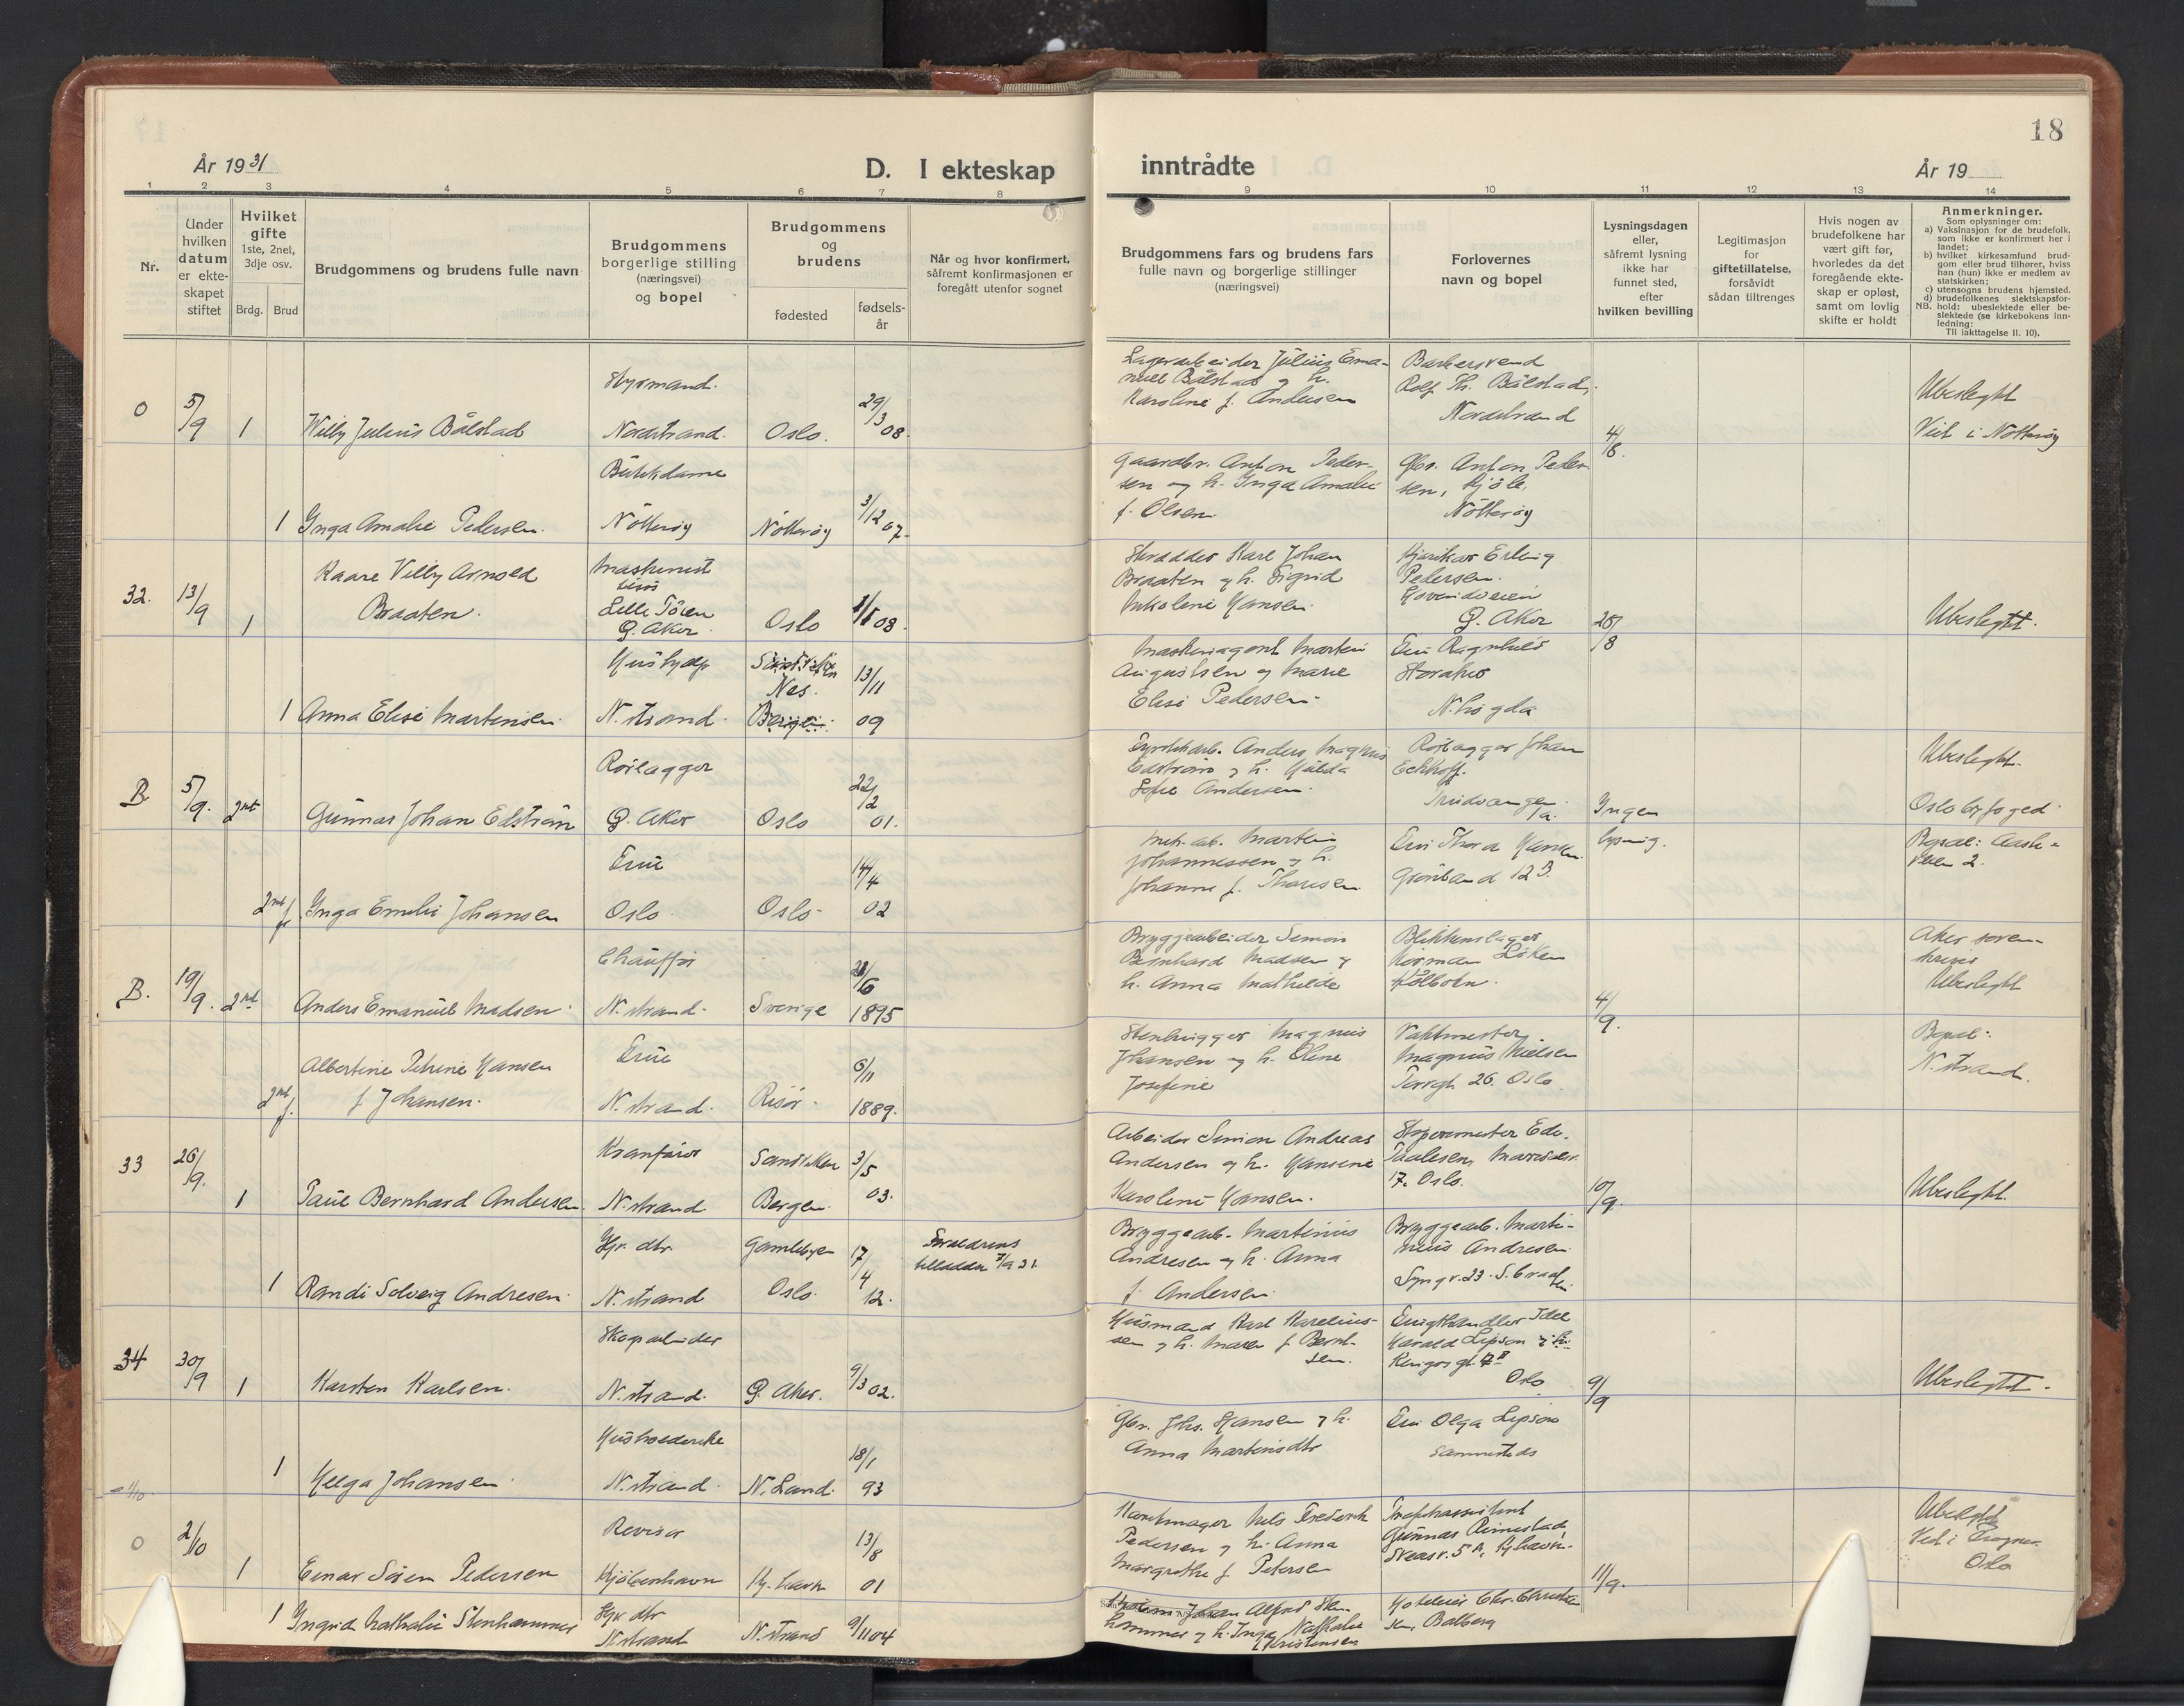 18
År 1931
D. I ekteskap
inntrådte
År 19
1 2 3 4 5 6 7 8 9 10 11 12 13 14
Nr.
Under
hvilken
datum
er ekte-
skapet
stiftet
Hvilket
gifte
1ste, 2net,
3dje osv.
Brdg. Brud
Brudgommens og brudens fulle navn
Brudgommens
borgerlige stilling
(næringsvei)
og bopel
Brudgommens
og
brudens
fødested
fødsels-
år
Når og hvor konfirmert,
såfremt konfirmasjonen er
foregått utenfor sognet
Brudgommens fars og brudens fars
fulle navn og borgerlige stillinger
(næringsvei)
Forlovernes
navn og bopel
Lysningsdagen
eller,
såfremt lysning
ikke har
funnet sted,
efter
hvilken bevilling
Legitimasjon
for
giftetillatelse,
forsåvidt
sådan tiltrenges
Hvis nogen av
brudefolkene har
vært gift før,
hvorledes da det
foregående ekte-
skap er opløst,
samt om lovlig
skifte er holdt
Anmerkninger.
Som oplysninger om:
a) Vaksinasjon for de brudefolk,
som ikke er konfirmert her i
landet;
b) hvilket kirkesamfund brud-
gom eller brud tilhører, hviss
han (hun) ikke er medlem av
statskirken;
c) utensogns brudens hjemsted.
d) brudefolkenes slektskapsfor-
NB. hold: ubeslektede eller be-
slektede (se kirkebokens inn-
ledning:
Til iakttagelse II. 10).
0
5/9
1
Willy Julius Bålstad
Styrmand.
Nordstrand.
Oslo.
29/3 08.
Lagerarbeider Julius Ema-
nuel Bålstad og h.
Karoline f. Andersen
Bakersvend
Rolf Th. Bålstad,
Nordstrand
4/8.
Ubeslegtt
Viet i Nøtterøy
1
Inga Amalie Pedersen.
Butikdame
Nøtterøy
Nøtterøy
3/12 07.
Gaardbr. Anton Peder-
sen og h. Inga Amalie
f. Olsen
Gbr. Anton Peder
sen, Kjøle
Nøtterøy
32.
13/9
1
Kaare Villy Arnold
Braaten.
Maskinist
Lille Tøien
Ø. Aker.
Oslo
08.
Skrædder Karl Johan
Braaten og h. Sigrid
Nikoline Hansen.
Erling
Pedersen.
Hovindveien
Ø. Aker
28/8
Ubeslegtt.
1
Anna Elise Martinsen.
Hushjelp
N. strand.
Nes.
Bergen.
13/11
09
Maskinagent Martin
Augustsen og Marie
Elise Pedersen.
Eru Ragnhild
Storaker
B.
5/9.
2net
Gunnar Johan Edstrøm
Rørlægger
Ø. Aker
Oslo
22/2
01.
Fyrstikarb. Anders Magnus
Edstrøm og h. Hulda
Sofie Andersen.
Rørlægger Johan
Eckhoff.
Trudvangen
Ingen
lysning.
Ubeslegtt.
Oslo byfoged
2net f.
Inga Emilie Johansen
Frue
Oslo.
Oslo.
14/4
02
Martin
Johannessen og h.
Johanne f. Thoresen
Fru Thora Hansen
Grønland 12 B.
Bopæl:
2.
B.
19/9.
2net
Anders Emanuel Madsen
Chauffør
N. strand.
Sverige
1895
Bryggearbeider Simon
Bernhard Madsen og
h. Anna Mathilde
Blikkenslager
Norman Løken
Kolbotn.
4/9.
Aker soren-
skriver
Ubeslegtt
2net f.
Albertine Petrine Hansen
f. Johansen.
Frue
N. strand.
Risør.
6/11
1889.
Stenhugger Magnus
Johansen og h. Oline
Josefine
Vaktmester
Magnus Nielsen
Torvgt. 26. Oslo.
Bopæl:
N. strand.
33
26/9.
1
Paul Bernhard Andersen.
Kranfører
N. strand
Sandviken
Bergen.
3/5
03.
Arbeider Simon Andreas
Andersen og h. Hansine
Karoline Hansen.
17. Oslo.
10/9.
Ubeslegtt.
1
Randi Solveig Andresen.
Hjv. dtr.
N. strand
Gamlebyen
Oslo.
17/4
12.
Foreldrenes
tilladelse 7/9 31.
Bryggearb. Martinius
Andresen og h. Anna
f. Andersen.
Bryggearb. Marti-
nius Andresen
34
30/9
1
Karsten Karlsen.
Skogarbeider
N. strand.
Ø. Aker.
9/3 02.
Husmand Karl Karelius-
sen og h. Maren f. Bernt-
sen.
Harald Lipson
Oslo
9/9
Ubeslegtt.
1
Helga Johansen
Husholderske
N. strand.
N. Land.
18/1
93
Gbr. Johs. Hansen og h.
Anna Martinsdtr
Fru Olga Lipson
sammesteds
0
2/10
1
Einar Søren Pedersen
Revisor
Kjøbenhavn
Kj. havn
13/8
01
Nels Frederik
Pedersen og h. Anna
Margrethe f. Petersen
Gunnar Rimestad,
11/9.
Ubeslegtt
Viet i Frogner.
Oslo
1
Ingrid Nathalie Stenhammer
Hjv. dtr
N. strand
N. strand
9/11 04
Johan Alfred Sten-
hammer og h. Inga Nathalie
f. Kristensen
Hotelier Chr. Christen
sen,